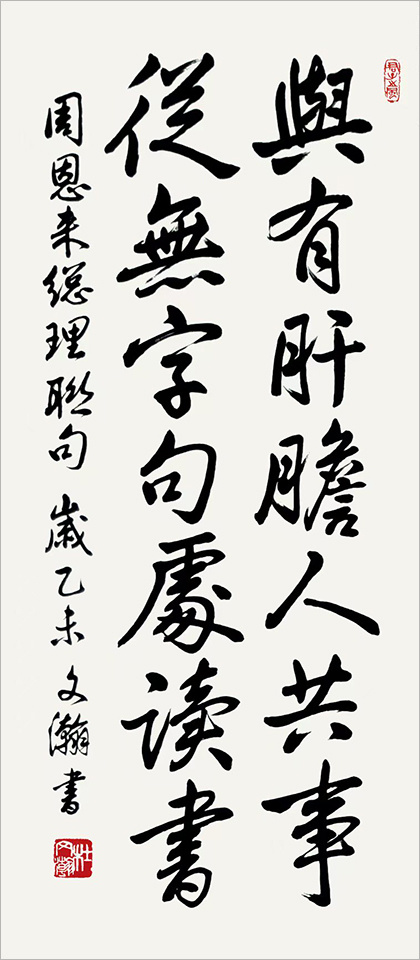 與有肝膽人共事
從無字句處讀書
周恩来總理聯句 歲乙未 文瀚書
杜文瀚